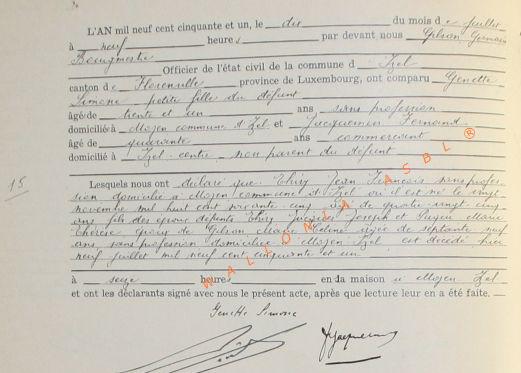 L'AN mil neuf cent cinquante et un, le dix du mois de juillet
à neuf heures par devant nous Gilson Germain
Bourgmestre
Officier de l'état civil de la commune d' Izel
canton de Florenville province de Luxembourg, ont comparu Genette
Simone petite fille du défunt
âgée de trente et un ans sans profession
domiciliée à Moyen commune d'Izel et Jacquemin Fernand
âgé de quarante ans commerçant
domicilié à Izel centre non parent du défunt
Lesquels nous ont déclaré que Thiry Jean François sans profes-
sion domicilié à Moyen commune d'Izel où il est né le vingt
novembre mil huit cent soixante cinq âgé de quatre-vingt cinq
ans fils des époux défunts Thiry Joseph et Marie
Thérèse époux de Gilson Marie âgée de septante neuf
ans, sans profession domiciliée à Moyen Izel est décédé hier
neuf juillet mil neuf cent cinquante et un
à seize heures en la maison à Moyen Izel
et ont les déclarants signé avec nous le présent acte, après que lecture leur en a été faite.
Genette Simone
Jacquemin
15
WALLONIA ASBL ®